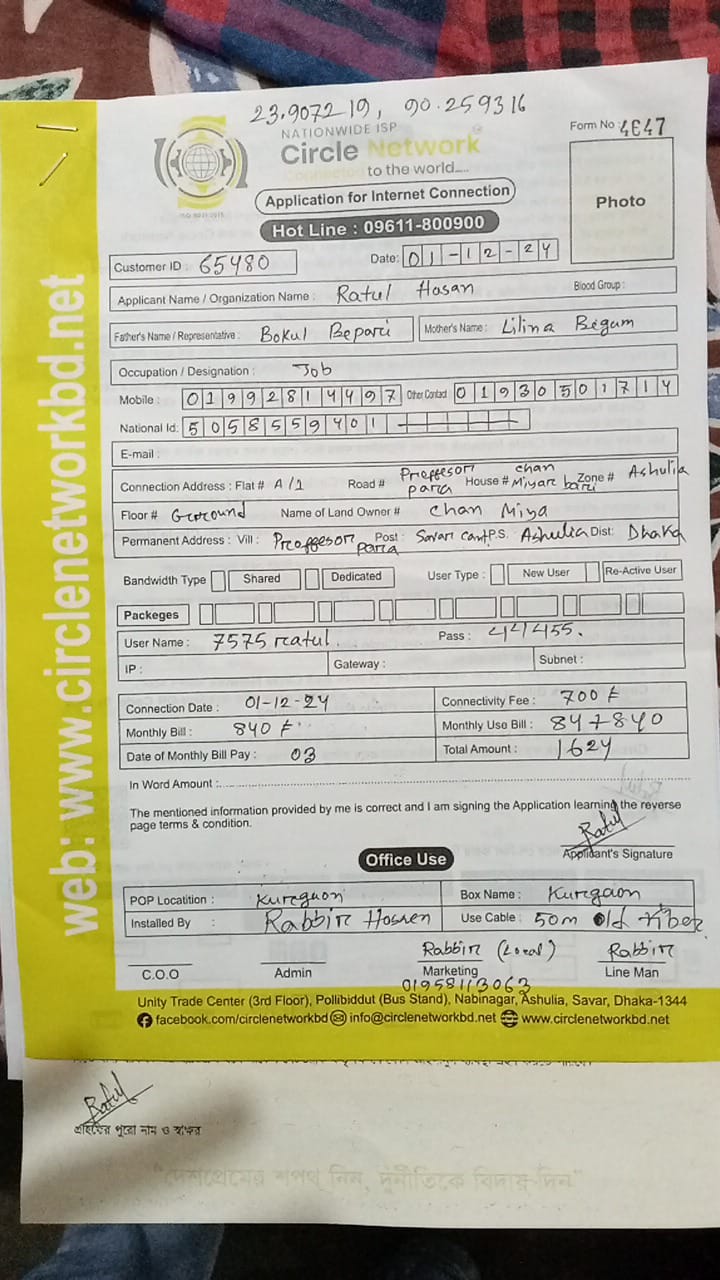 23.907219, 90.259316
NATIONWIDE ISP
Circle Network
Connected to the world....
ISO 9001:2015
Form No : 4647
Application for Internet Connection
Photo
Hot Line : 09611-800900
Customer ID : 65480 Date: 01-12-24
Applicant Name / Organization Name : Ratul Hasan Blood Group :
Father's Name / Representative : Bokul Bepari Mother's Name : Lilina Begum
Occupation / Designation : Job
Mobile : 01992814497 Other Contact 01930501714
National Id: 5058559401
E-mail :
Connection Address : Flat # A/1 Road # Proffesor para House # chan Miyar bari Zone # Ashulia
Floor # Ground Name of Land Owner # Chan Miya
Permanent Address : Vill : Proffesor para Post : Savar cant P.S. Ashulia Dist: Dhaka
Bandwidth Type Shared Dedicated User Type : New User Re-Active User
Packeges
User Name : 7575 ratul. Pass : 444455.
IP : Gateway : Subnet :
Connection Date : 01-12-24 Connectivity Fee : 700 ৳
Monthly Bill : 840 ৳ Monthly Use Bill :
Date of Monthly Bill Pay : 03 Total Amount : 1624
In Word Amount :
The mentioned information provided by me is correct and I am signing the Application learning the reverse
page terms & condition.
Ratul
Applicant's Signature
Office Use
POP Locatition : Kurgaon Box Name : Kurgaon
Installed By : Rabbir Hosnen Use Cable : 50m old Fiber
Rabbir (Local) Rabbir
C.O.O Admin Marketing Line Man
01958113063
Unity Trade Center (3rd Floor), Pollibiddut (Bus Stand), Nabinagar, Ashulia, Savar, Dhaka-1344
facebook.com/circlenetworkbd info@circlenetworkbd.net www.circlenetworkbd.net
web: www.circlenetworkbd.net
Ratul
গ্রাহকের পুরো নাম ও স্বাক্ষর
"দেশপ্রেমের শপথ নিন, দুর্নীতিকে বিদায় দিন"